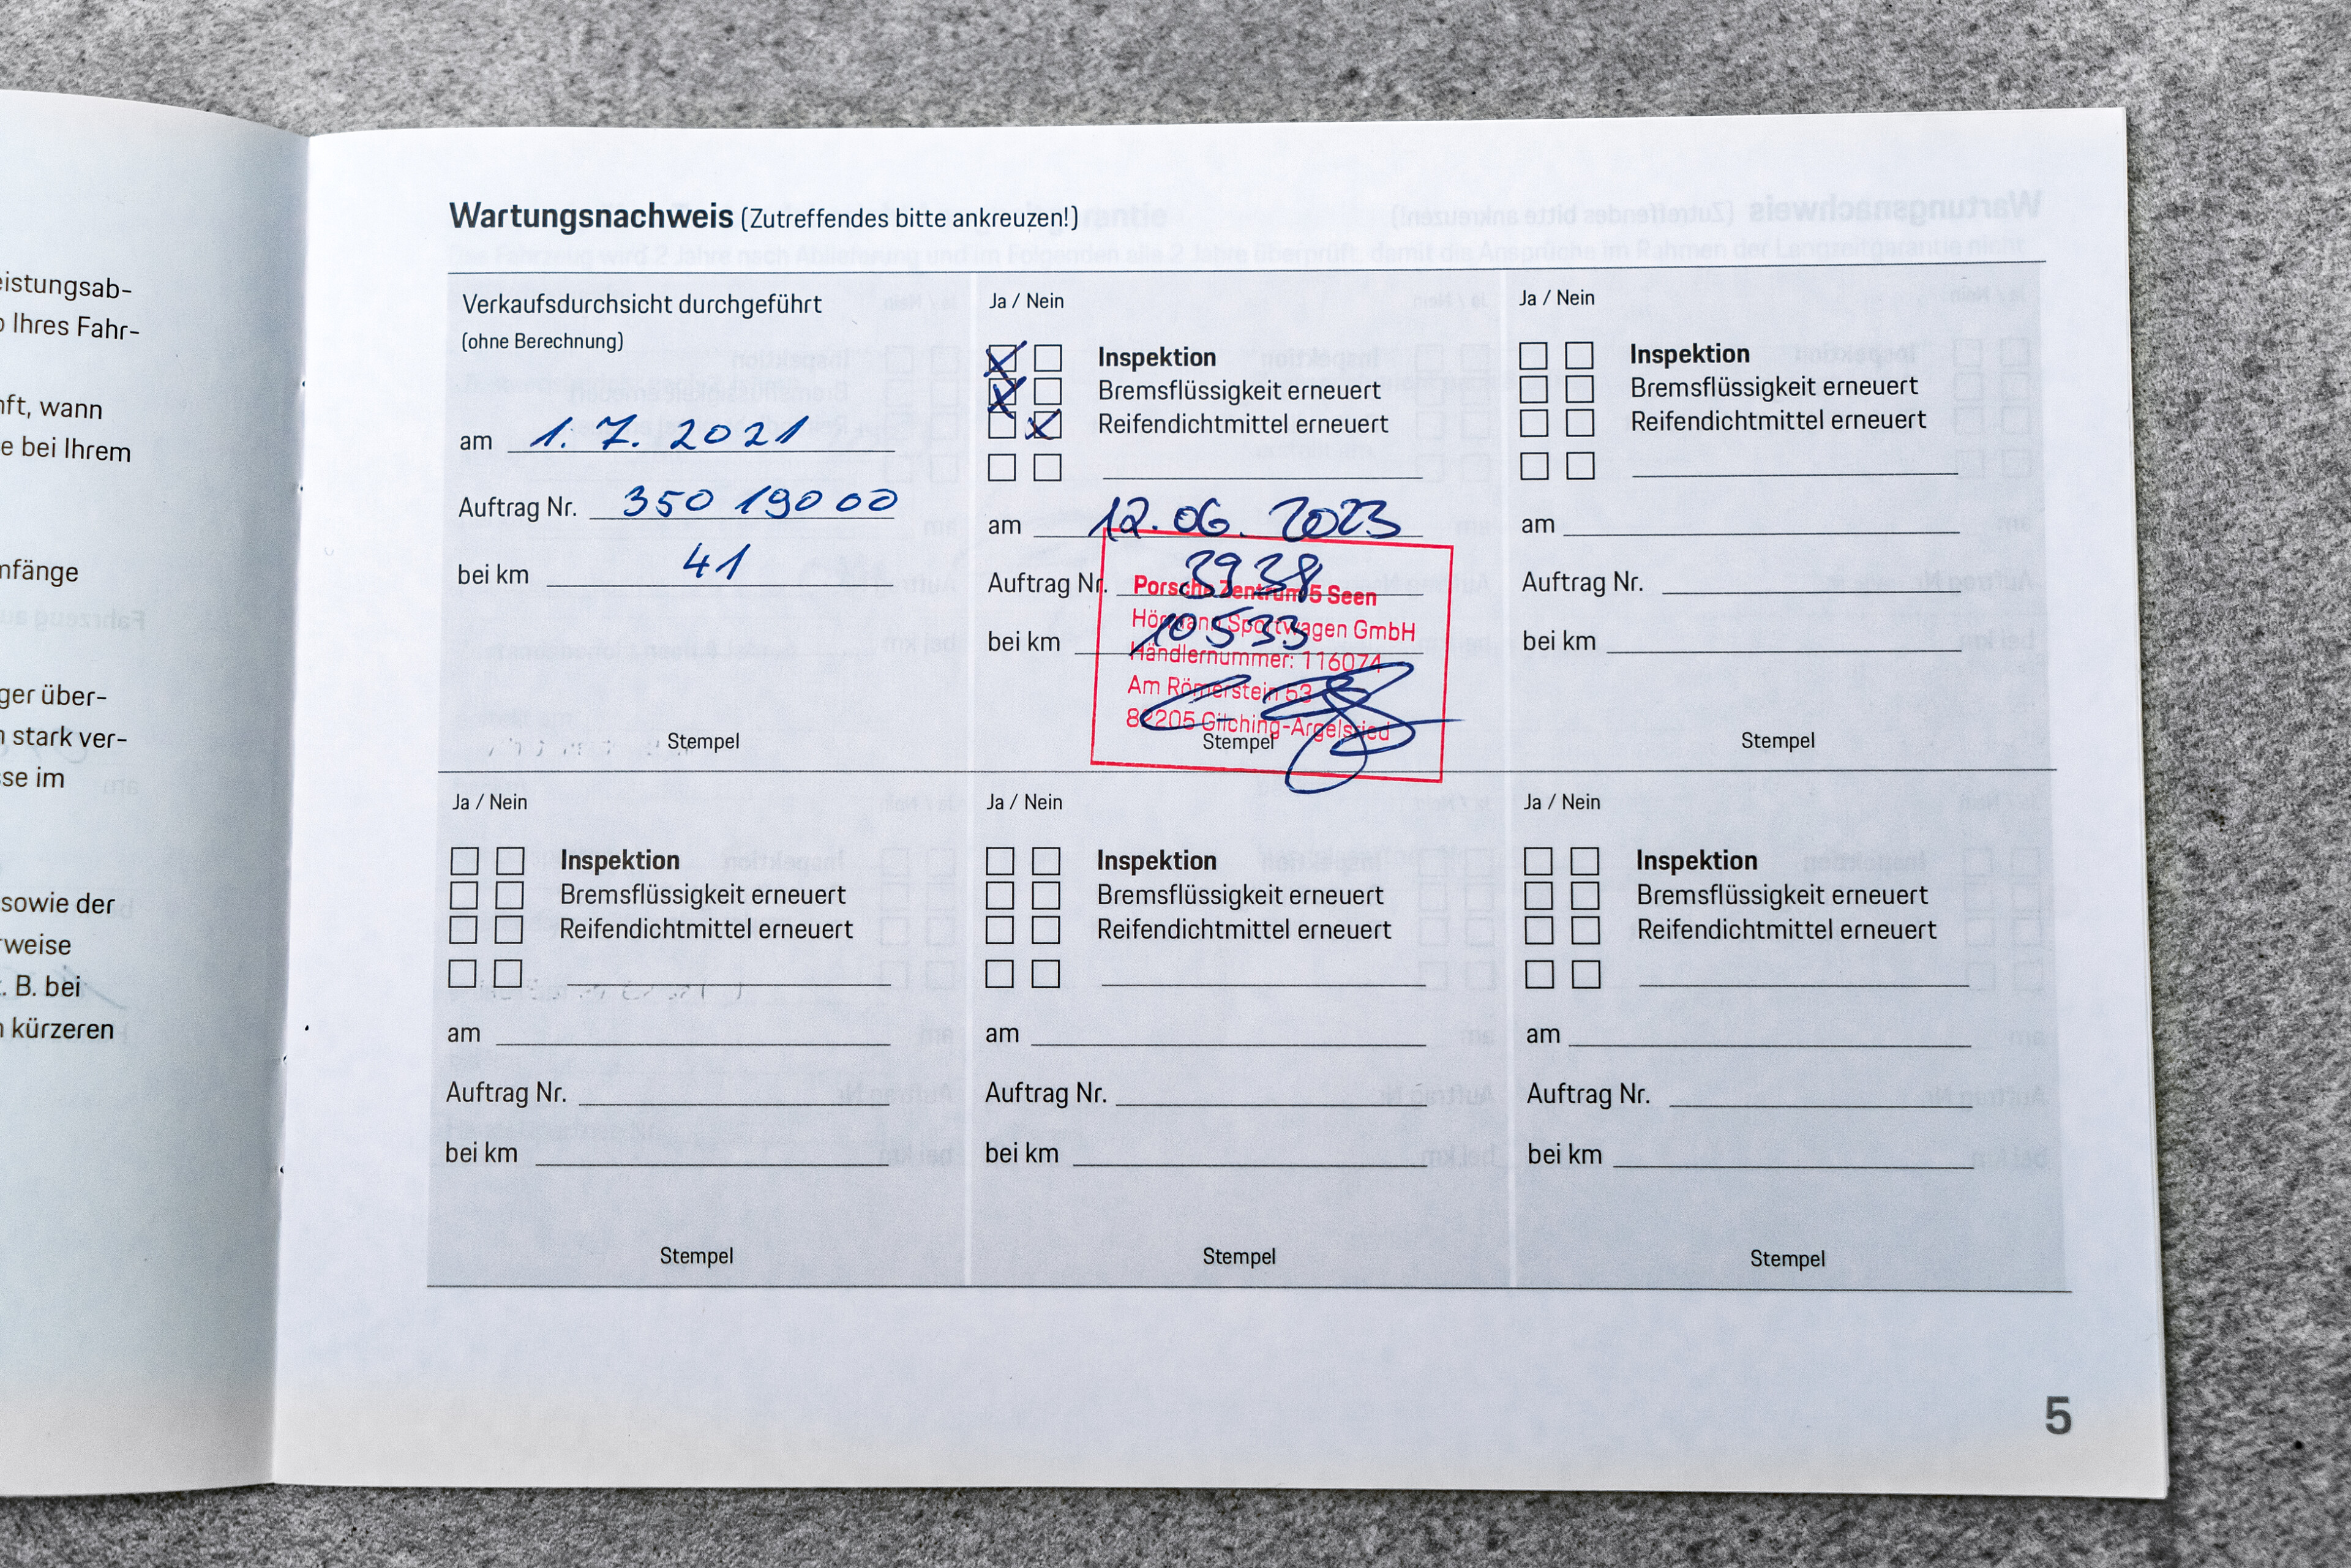 eistungsab-
o Ihres Fahr-
nft, wann
e bei Ihrem
nfänge
ger über-
n stark ver-
sse im
sowie der
rweise
. B. bei
n kürzeren
Wartungsnachweis (Zutreffendes bitte ankreuzen!)
Verkaufsdurchsicht durchgeführt
(ohne Berechnung)
am 1. 7. 2021
Auftrag Nr. 350 190 00
bei km 41
Stempel
Ja / Nein
Inspektion
Bremsflüssigkeit erneuert
Reifendichtmittel erneuert
am 12.06.2023
Auftrag Nr. 3938
bei km 10533
Porsche Zentrum 5 Seen
Hörmann Sportwagen GmbH
Händlernummer: 116074
Am Römerstein 53
82205 Gilching-Argelsried
Stempel
Ja / Nein
Inspektion
Bremsflüssigkeit erneuert
Reifendichtmittel erneuert
am
Auftrag Nr.
bei km
Stempel
Ja / Nein
Inspektion
Bremsflüssigkeit erneuert
Reifendichtmittel erneuert
am
Auftrag Nr.
bei km
Stempel
Ja / Nein
Inspektion
Bremsflüssigkeit erneuert
Reifendichtmittel erneuert
am
Auftrag Nr.
bei km
Stempel
Ja / Nein
Inspektion
Bremsflüssigkeit erneuert
Reifendichtmittel erneuert
am
Auftrag Nr.
bei km
Stempel
5